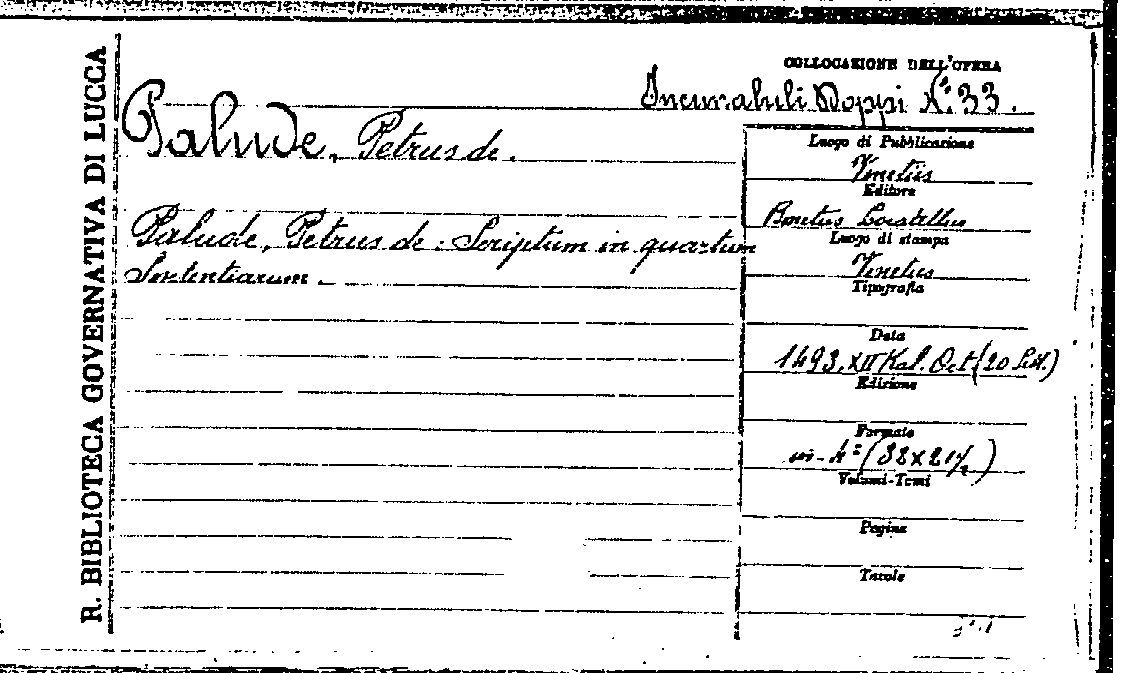 R. BIBLIOTECA GOVERNATIVA DI LUCCA
COLLOCAZIONE DELL'OPERA
Incunabuli Doppi N.° 33.
Palude, Petrus de.
Palude, Petrus de: Scriptum in quartum
Sententiarum.
Luogo di Pubblicazione
Venetiis
Editore
Bonetus Locatellus
Luogo di stampa
Venetiis
Tipografia
Data
1493, XII Kal. Oct (20 Sett.)
Edizione
Formato
in-4° (32 X 21½)
Volumi-Tomi
Pagine
Tavole